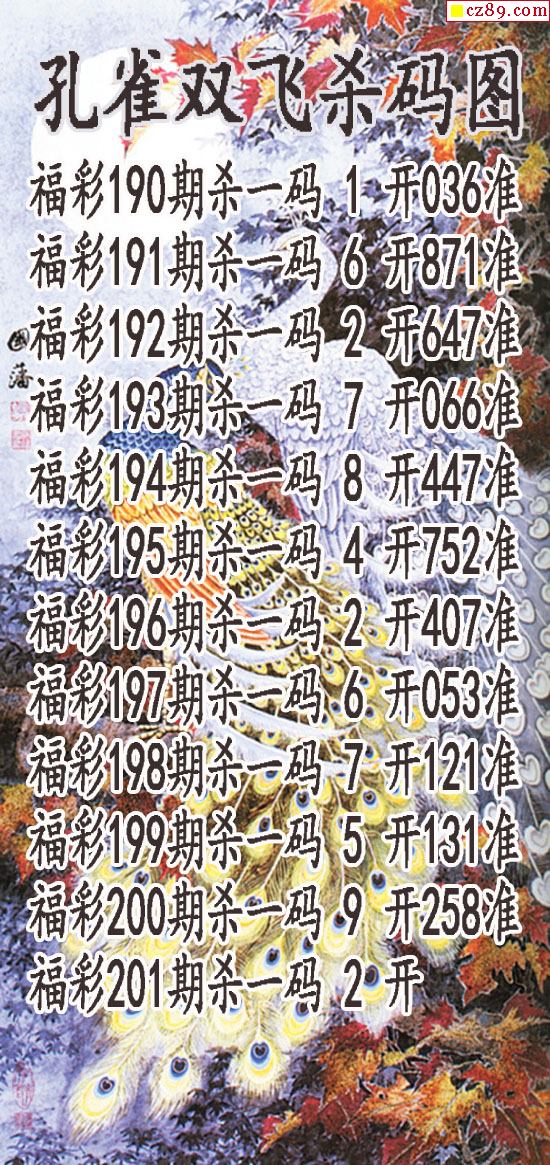 cz89.com
孔雀双飞杀码图
福彩190期杀一码 1 开036准
福彩191期杀一码 6 开871准
福彩192期杀一码 2 开647准
福彩193期杀一码 7 开066准
福彩194期杀一码 8 开447准
福彩195期杀一码 4 开752准
福彩196期杀一码 2 开407准
福彩197期杀一码 6 开053准
福彩198期杀一码 7 开121准
福彩199期杀一码 5 开131准
福彩200期杀一码 9 开258准
福彩201期杀一码 2 开